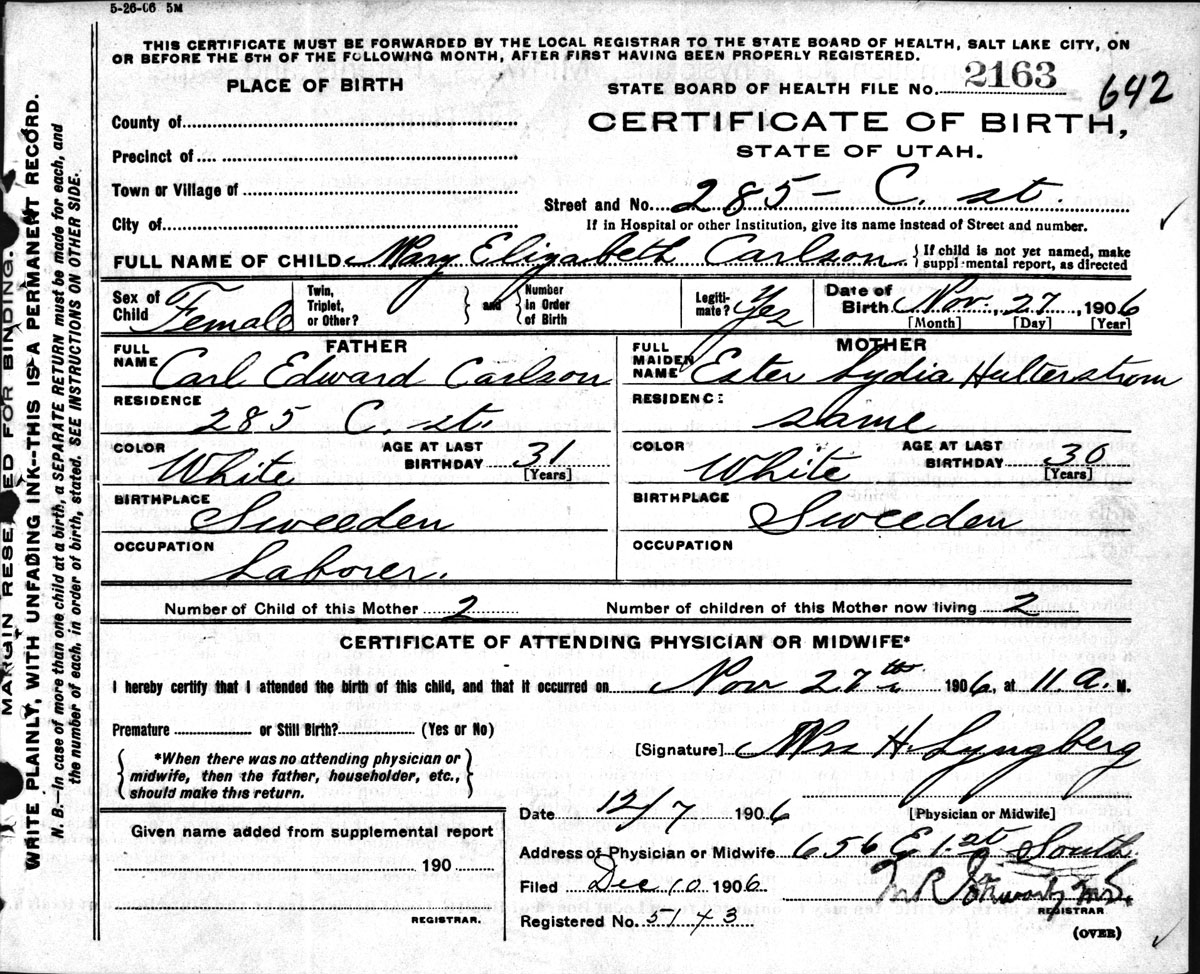 5-26-06 5M
THIS CERTIFICATE MUST BE FORWARDED BY THE LOCAL REGISTRAR TO THE STATE BOARD OF HEALTH, SALT LAKE CITY, ON
OR BEFORE THE 5TH OF THE FOLLOWING MONTH, AFTER FIRST HAVING BEEN PROPERLY REGISTERED.
PLACE OF BIRTH
STATE BOARD OF HEALTH FILE No. 2163 642
County of
CERTIFICATE OF BIRTH,
Precinct of
STATE OF UTAH.
Town or Village of
Street and No. 285 - C. st.
City of
If in Hospital or other Institution, give its name instead of Street and number.
FULL NAME OF CHILD Mary Elizabeth Carlson { If child is not yet named, make
supplemental report, as directed
Sex of Child Female
Twin, Triplet, or Other? } and { Number in Order of Birth
Legitimate? Yes
Date of Birth Nov. 27, 1906
[Month] [Day] [Year]
FATHER
FULL NAME Carl Edward Carlson
RESIDENCE 285 C. st.
COLOR White AGE AT LAST BIRTHDAY 31 [Years]
BIRTHPLACE Sweeden
OCCUPATION Laborer.
MOTHER
FULL MAIDEN NAME Ester Lydia Hulterstrom
RESIDENCE same
COLOR White AGE AT LAST BIRTHDAY 30 [Years]
BIRTHPLACE Sweeden
OCCUPATION
Number of Child of this Mother 2 Number of children of this Mother now living 2
CERTIFICATE OF ATTENDING PHYSICIAN OR MIDWIFE*
I hereby certify that I attended the birth of this child, and that it occurred on Nov 27th 1906, at 11 a. M.
Premature or Still Birth? (Yes or No)
*When there was no attending physician or
midwife, then the father, householder, etc.,
should make this return.
[Signature] Mrs H. Lyngberg
[Physician or Midwife]
Date 12/7 1906
Given name added from supplemental report
190
REGISTRAR.
Address of Physician or Midwife 656 E 1.st South
Filed Dec 10 1906
REGISTRAR
Registered No. 5143
(OVER)
MARGIN RESERVED FOR BINDING.
WRITE PLAINLY, WITH UNFADING INK--THIS IS A PERMANENT RECORD.
N. B.--In case of more than one child at a birth, a SEPARATE RETURN must be made for each, and
the number of each, in order of birth, stated. SEE INSTRUCTIONS ON OTHER SIDE.